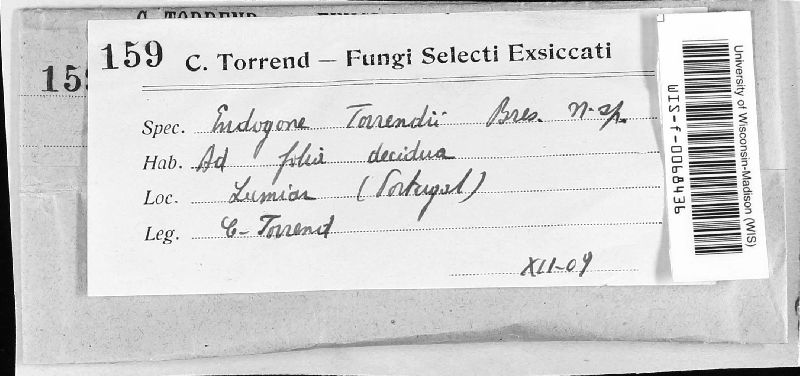 C. TORREND
159
159 C. Torrend — Fungi Selecti Exsiccati
Spec. Endogone Torrendii Bres. n. sp.
Hab. Ad folia decidua
Loc. Lumiar (Portugal)
Leg. C. Torrend
XII-09
University of Wisconsin-Madison (WIS)
WIS-f-0068436